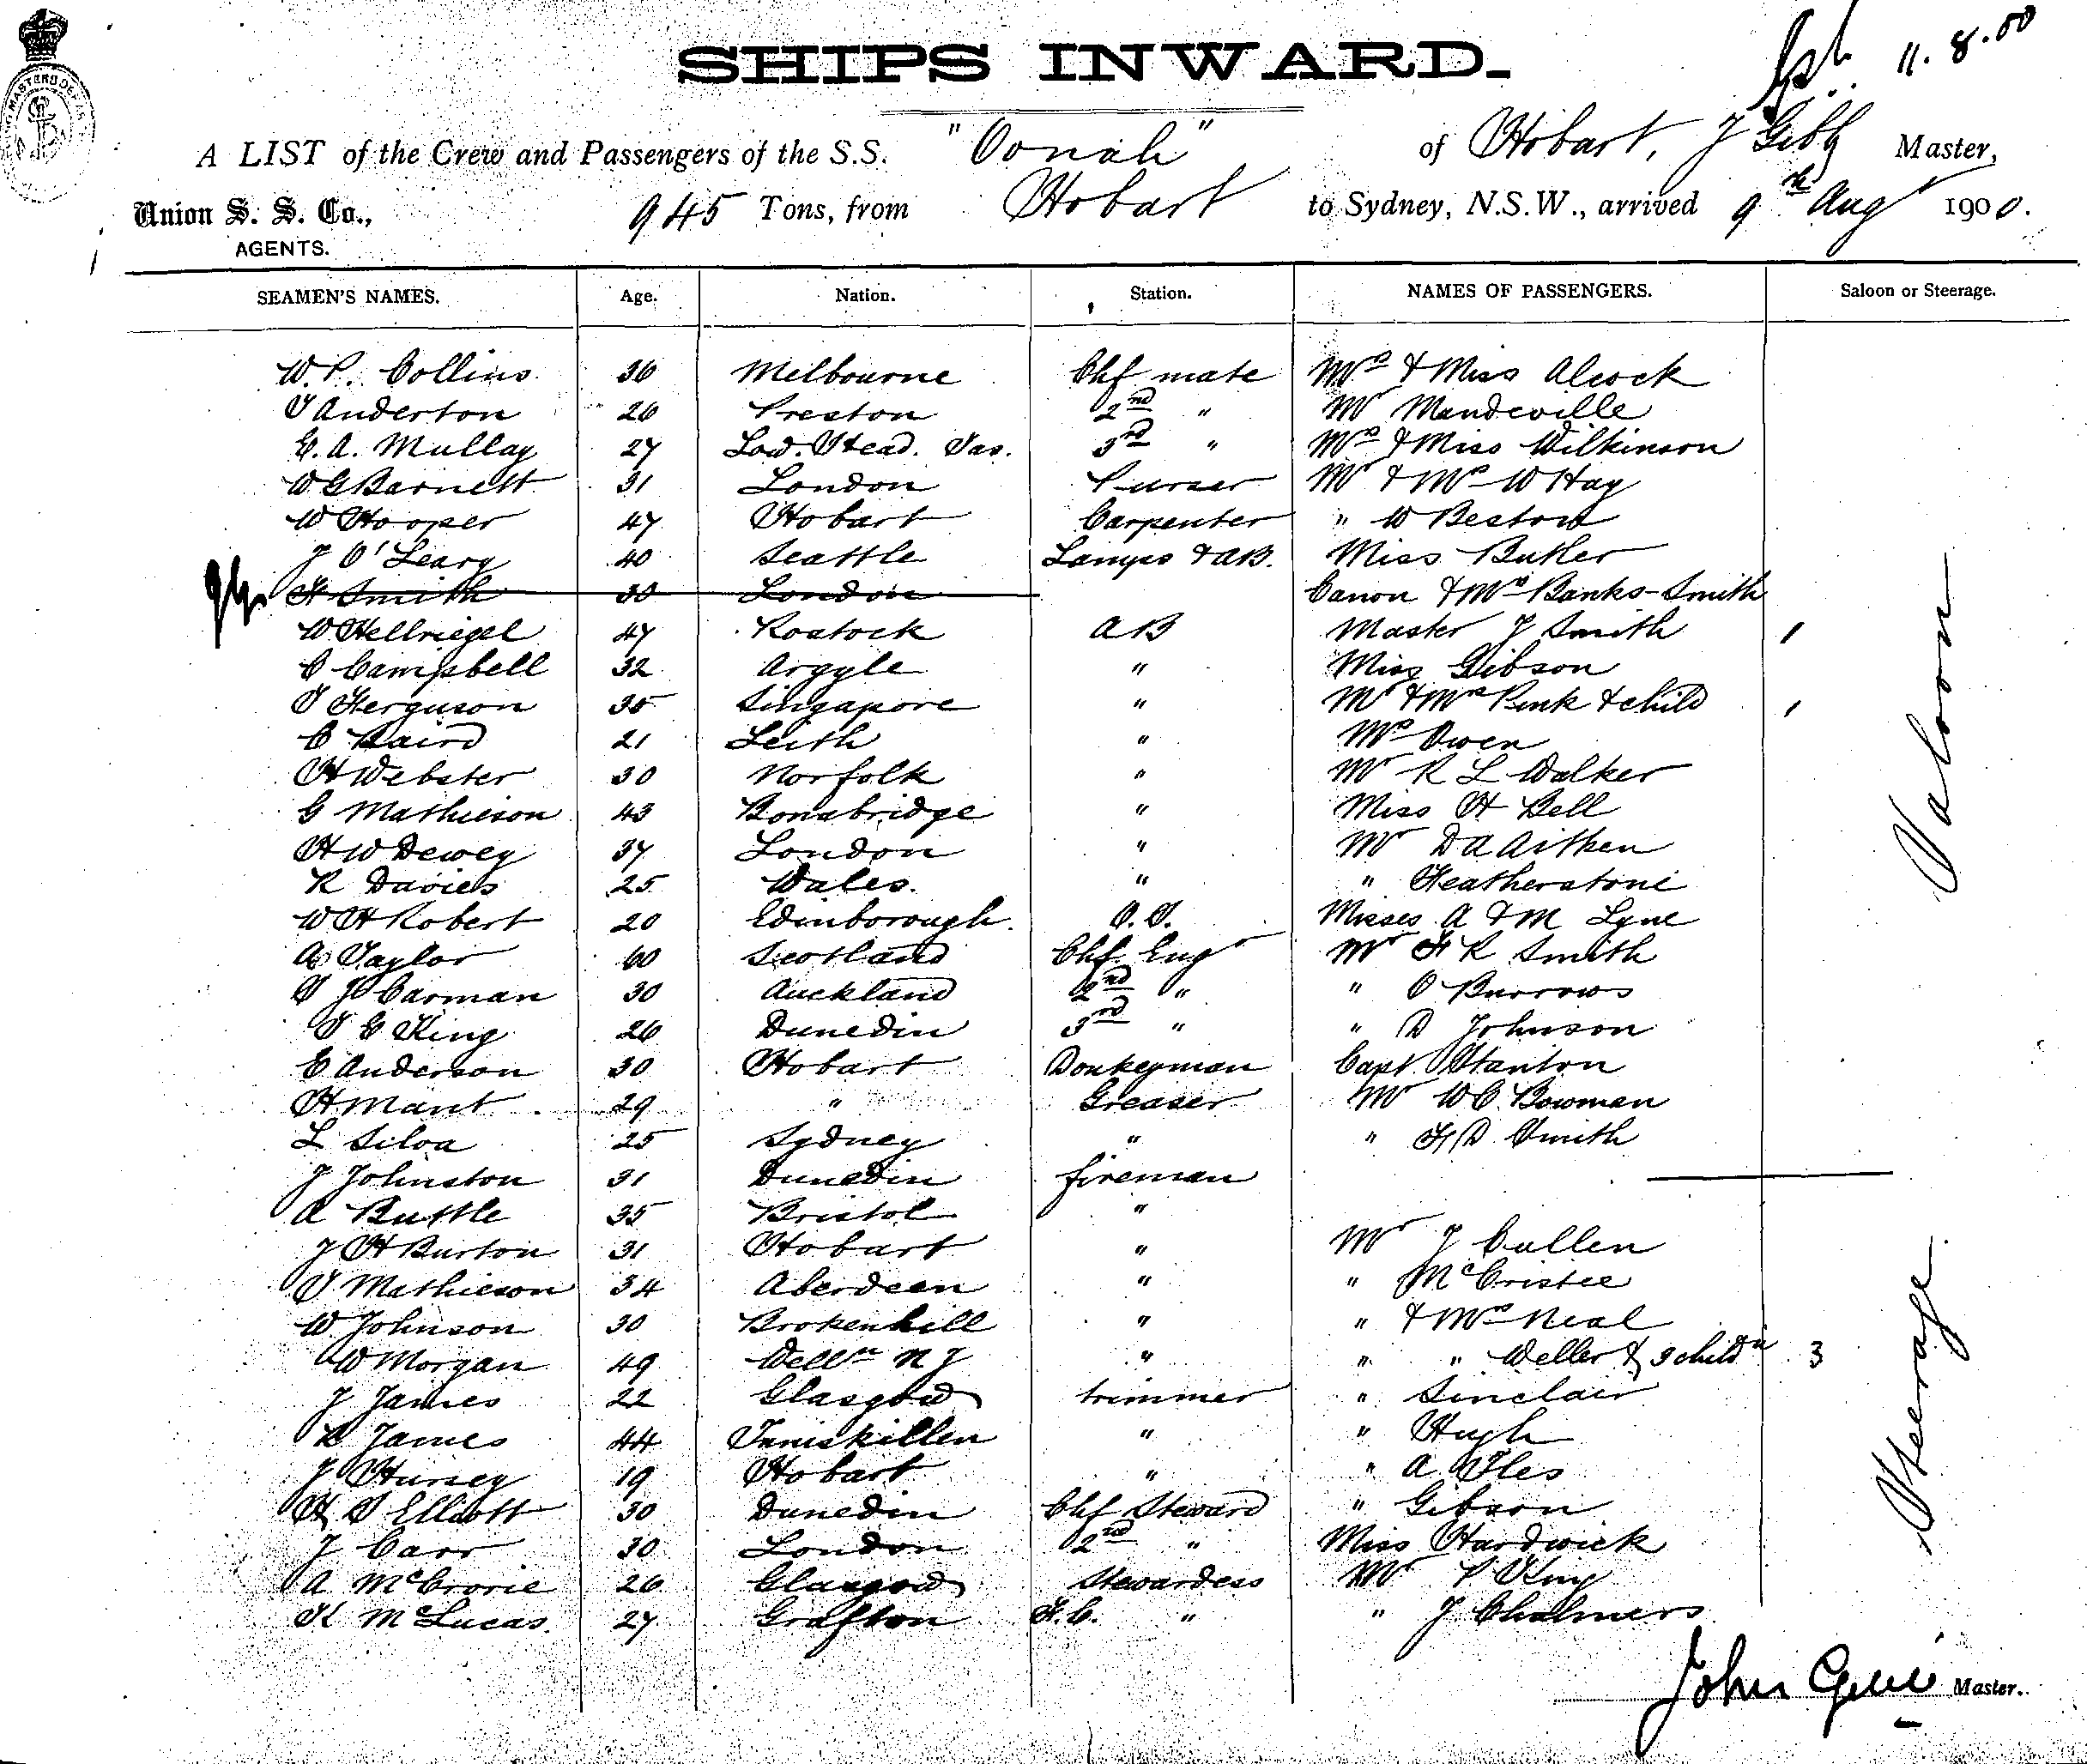 SHIPS INWARD.
11.8.00
A LIST of the Crew and Passengers of the S.S. "Oonah" of Hobart, J Gibb Master,
Union S. S. Co., 945 Tons, from Hobart to Sydney, N.S.W., arrived 9th Aug 1900.
AGENTS.
SEAMEN'S NAMES. Age. Nation. Station. NAMES OF PASSENGERS. Saloon or Steerage.
W. P. Collins 36 Melbourne Chf mate Mrs & Miss Alcock
T Anderton 26 Preston 2nd " Mr Mandeville
E. A. Mullay 27 Low. Head. Tas. 3rd " Mrs & Miss Wilkinson
W G Barnett 31 London Purser Mr & Mrs W Hay
W Hooper 47 Hobart Carpenter " W Bestow
J O'Leary 40 Seattle Lamps & AB. Miss Butler
F Smith 30 London Canon & Mrs Banks-Smith
W Hellriegel 47 Rostock AB Master J Smith 1
C Campbell 32 Argyle " Miss Gibson
T Ferguson 35 Singapore " Mr & Mrs Pink & child 1
C Baird 21 Leith " Mrs Owen
H Webster 30 Norfolk " Mr R L Walker
G Mathieson 43 Bonabridge " Miss H Bell
H W Dewey 37 London " Mr D A Aitken
R Davies 25 Wales. " " Featherstone
W H Robert 20 Edinborough. O.S. Misses A & M Lyne
A Taylor 60 Scotland Chf. Engr Mr F R Smith
T J Carman 30 Auckland 2nd " " O Burrows
T E King 26 Dunedin 3rd " " D Johnson
E Anderson 30 Hobart Donkeyman Capt Stanton
H Mant 29 " Greaser Mr W C. Bowman
L Silva 25 Sydney " " F D. Smith
J Johnston 31 Dunedin fireman
A Buttle 35 Bristol "
J H Burton 31 Hobart " Mr J Cullen
T Mathieson 34 Aberdeen " " McCristie
W Johnson 30 Brokenhill " " & Mrs Neal
W Morgan 49 Welln N Z " " " Weller & 3 childn 3
J James 22 Glasgow trimmer " Sinclair
R James 44 Inniskillen " " Hugh
J Hursey 19 Hobart " " A Iles
H T Elliott 30 Dunedin Chf Steward " Gibson
J Carr 30 London 2nd " Miss Hardwick
A McCrorie 26 Glasgow Stewardess Mr P King
K McLucas. 27 Grafton F.C. " " J Chalmers
Saloon
Steerage
John Master.